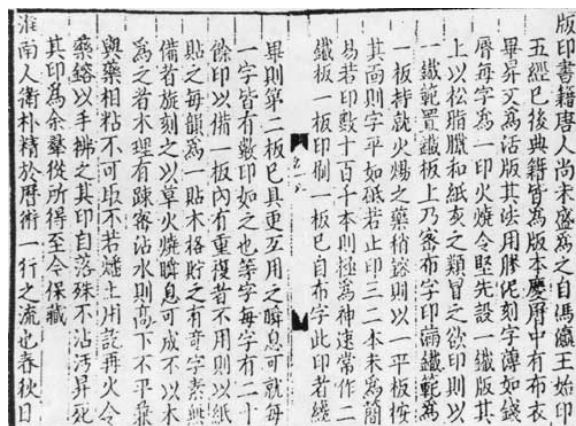 版印書籍唐人尚未盛為之自馮瀛王始印
五經已後典籍皆為版本慶曆中有布衣
畢昇又為活版其法用膠泥刻字薄如錢
脣每字為一印火燒令堅先設一鐵版其
上以松脂臘和紙灰之類冒之欲印則以
一鐵範置鐵板上乃密布字印滿鐵範為
一板持就火煬之藥稍鎔則以一平板按
其面則字平如砥若止印三二本未為簡
易若印數十百千本則極為神速常作二
鐵板一板印刷一板已自布字此印者纔
畢則第二板已具更互用之瞬息可就每
一字皆有數印如之也等字每字有二十
餘印以備一板內有重複者不用則以紙
貼之每韻為一貼木格貯之有奇字素無
備者旋刻之以草火燒瞬息可成不以木
為之者木理有疎密沾水則高下不平兼
與藥相粘不可取不若燔土用訖再火令
藥鎔以手拂之其印自落殊不沾污昇死
其印為余羣從所得至今保藏
淮南人衛朴精於曆術一行之流也春秋日